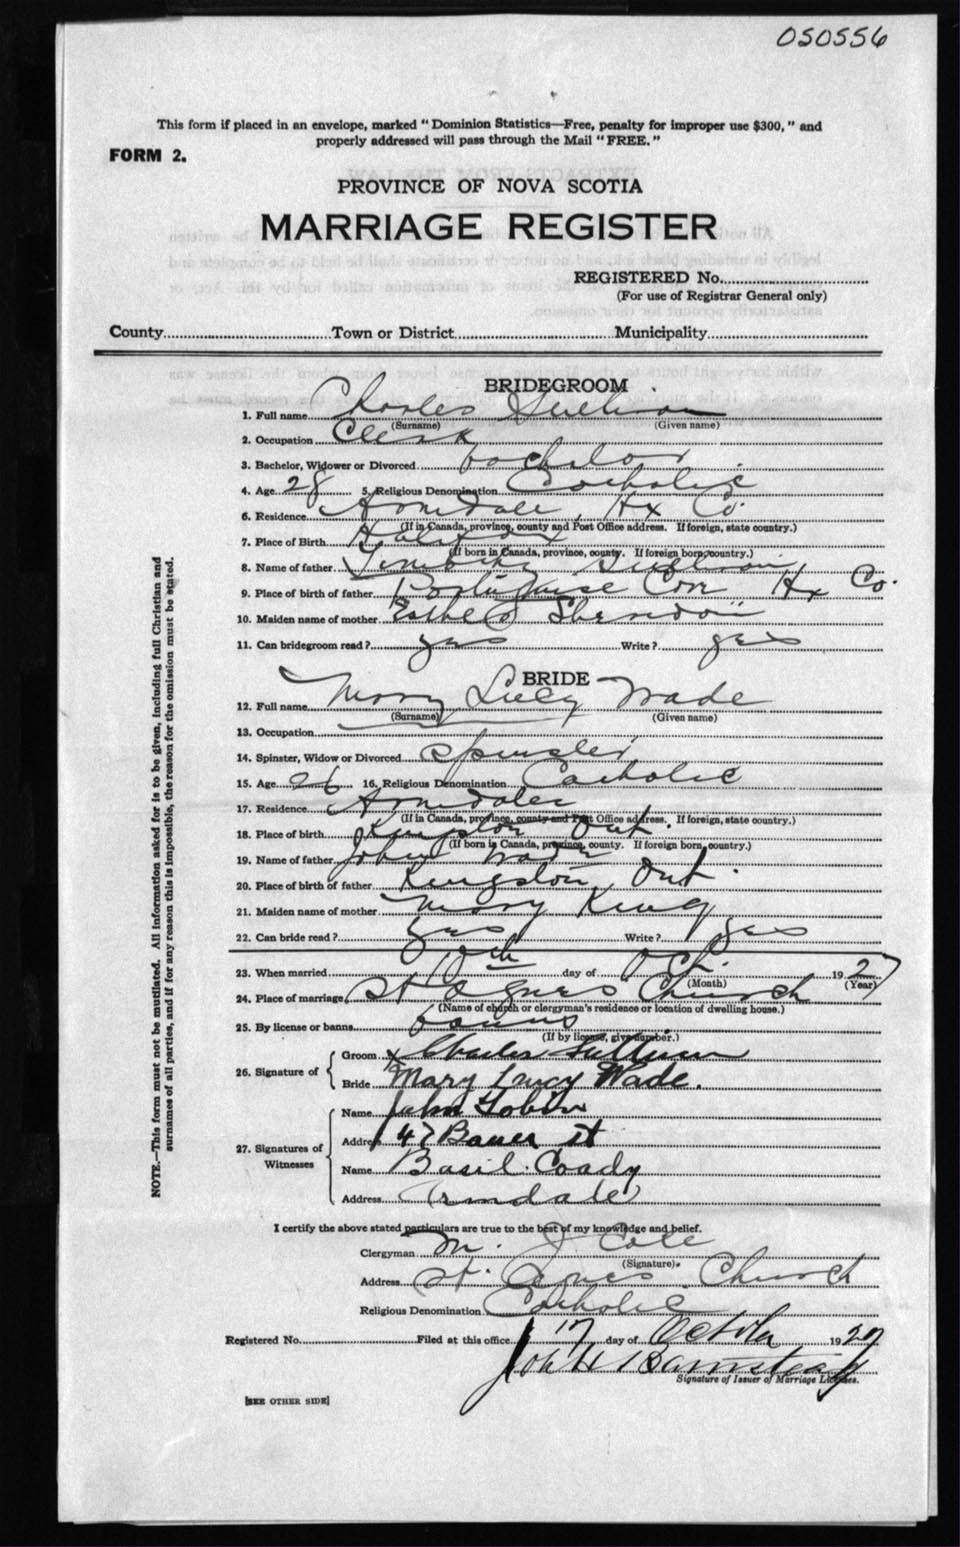 050556
This form if placed in an envelope, marked "Dominion Statistics—Free, penalty for improper use $300," and
properly addressed will pass through the Mail "FREE."
FORM 2.
PROVINCE OF NOVA SCOTIA
MARRIAGE REGISTER
REGISTERED No.
(For use of Registrar General only)
County Town or District Municipality
BRIDEGROOM
1. Full name Charles Sullivan
(Surname) (Given name)
2. Occupation Clerk
3. Bachelor, Widower or Divorced bachelor
4. Age 28 5. Religious Denomination Catholic
6. Residence Armdale, Hx Co.
(If in Canada, province, county and Post Office address. If foreign, state country.)
7. Place of Birth Halifax
(If born in Canada, province, county. If foreign born, country.)
8. Name of father Timothy Sullivan
9. Place of birth of father Portuguise Cov Hx Co.
10. Maiden name of mother Esther
11. Can bridegroom read? yes Write? yes
BRIDE
12. Full name Mary Lucy Wade
(Surname) (Given name)
13. Occupation
14. Spinster, Widow or Divorced Spinster
15. Age 26 16. Religious Denomination Catholic
17. Residence Armdale
(If in Canada, province, county and Post Office address. If foreign, state country.)
18. Place of birth Kingston Ont.
(If born in Canada, province, county. If foreign born, country.)
19. Name of father John Wade
20. Place of birth of father Kingston, Ont.
21. Maiden name of mother Mary King
22. Can bride read? yes Write? yes
23. When married 10th day of Oct. 1927
(Month) (Year)
24. Place of marriage St Agnes Church
(Name of church or clergyman's residence or location of dwelling house.)
25. By license or banns banns
(If by license, give number.)
26. Signature of
Groom x Charles Sullivan
Bride Mary Lucy Wade.
27. Signatures of Witnesses
Name John Tobin
Address 147 Bauer St
Name Basil Coady
Address Armdale
I certify the above stated particulars are true to the best of my knowledge and belief.
Clergyman M. J Cole
(Signature).
Address St. Agnes Church
Religious Denomination Catholic
Registered No. Filed at this office 17 day of October 1927
John H Barnstead
Signature of Issuer of Marriage Licenses.
[SEE OTHER SIDE]
NOTE.—This form must not be mutilated. All information asked for is to be given, including full Christian and
surnames of all parties, and if for any reason this is impossible, the reason for the omission must be stated.